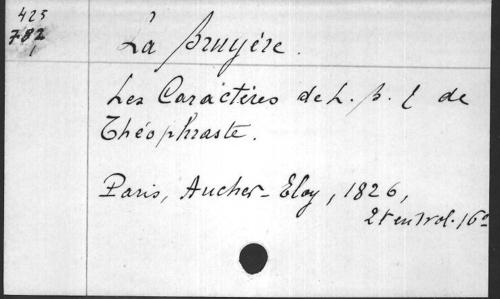 423
782
1
La Bruyère.
Les Caractères de L. B. & de
Théophraste.
Paris, Aucher-Eloy, 1826,
2t en 1 vol. 16º